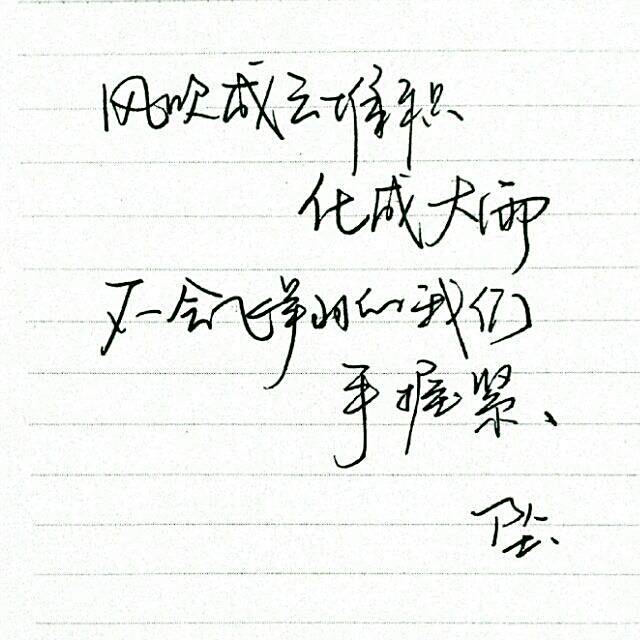 风吹成云堆积
化成大雨
不会飞翔的我们
手握紧、
坠